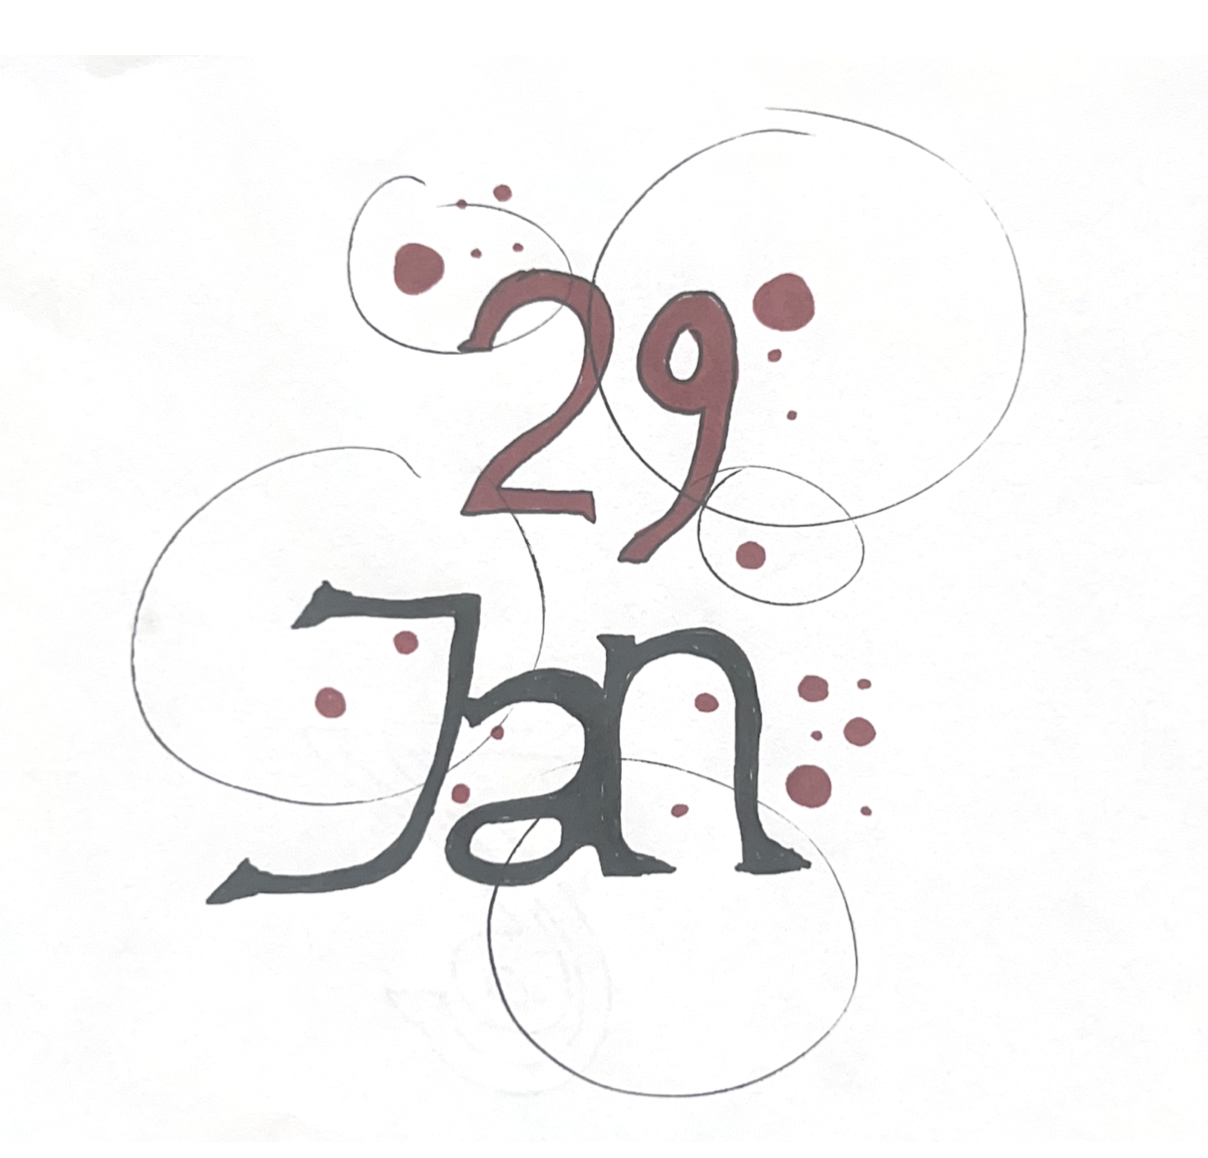 29
Jan